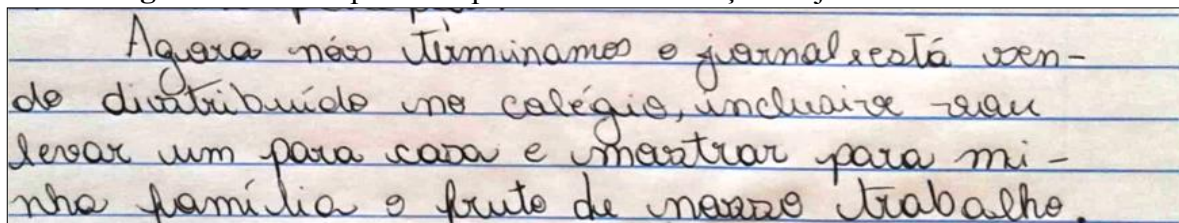 Agora nós terminamos o jornal e está sen-
do distribuído no colégio, inclusive vou
levar um para casa e mostrar para mi-
nha família o fruto de nosso trabalho.